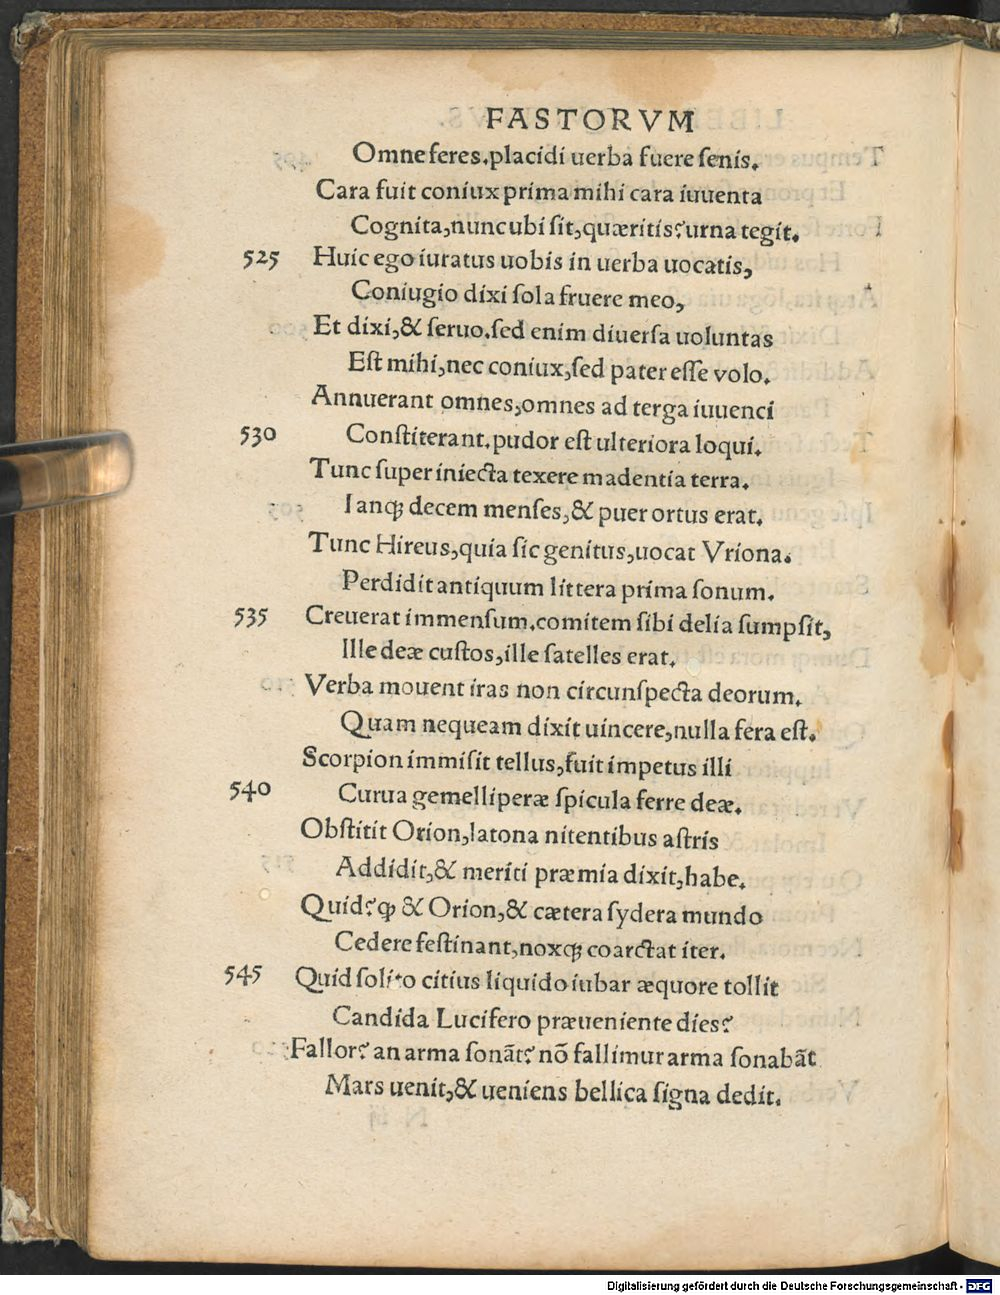 FASTORVM
Omne feres.placidi uerba fuere ſenis.
Cara fuit coniux prima mihi cara iuuenta
Cognita,nunc ubi ſit,quæritis?urna tegit.
525 Huic ego iuratus uobis in uerba uocatis,
Coniugio dixi ſola fruere meo,
Et dixi,& ſeruo.ſed enim diuerſa uoluntas
Eſt mihi,nec coniux,ſed pater eſſe volo.
Annuerant omnes,omnes ad terga iuuenci
530 Conſtiterant.pudor eſt ulteriora loqui.
Tunc ſuper iniecta texere madentia terra.
Ianqꝫ decem menſes,& puer ortus erat.
Tunc Hireus,quia ſic genitus,uocat Vriona.
Perdidit antiquum littera prima ſonum.
535 Creuerat immenſum.comitem ſibi delia ſumpſit,
Ille deæ cuſtos,ille ſatelles erat.
Verba mouent iras non circunſpecta deorum.
Quam nequeam dixit uincere,nulla fera eſt.
Scorpion immiſit tellus,fuit impetus illi
540 Curua gemelliperæ ſpicula ferre deæ.
Obſtitit Orion,latona nitentibus aſtris
Addidit,& meriti præmia dixit,habe.
Quid?ꝙ & Orion,& cætera ſydera mundo
Cedere feſtinant,noxqꝫ coarctat iter.
545 Quid ſolito citius liquido iubar æquore tollit
Candida Lucifero præueniente dies?
Fallor?an arma ſonāt?nō fallimur arma ſonabāt
Mars uenit,& ueniens bellica ſigna dedit.
Digitalisierung gefördert durch die Deutsche Forschungsgemeinschaft - DFG